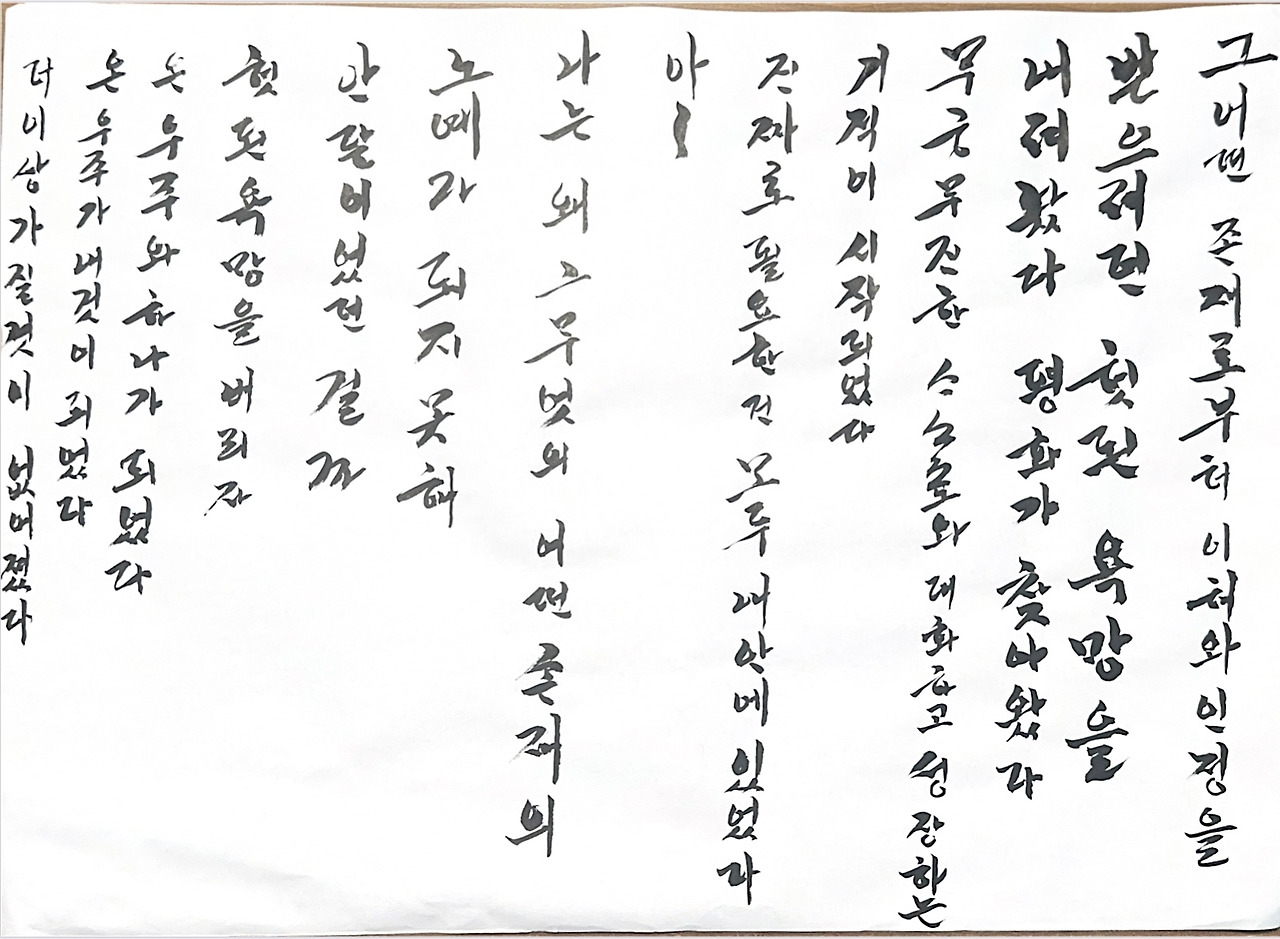 그 어떤 존재로부터 이해와 인정을
받으려던 헛된 욕망을
내려놨다 평화가 찾아왔다
무궁무진한 스스로와 대화하고 성장하는
기적이 시작되었다
진짜로 필요한건 모두 내안에 있었다
아!
나는 왜 그 무엇의 어떤 존재의
노예가 되지 못해
안달이었던 걸까
헛된 욕망을 버리자
온 우주와 하나가 되었다
온 우주가 내것이 되었다
더이상 가질것이 없어졌다